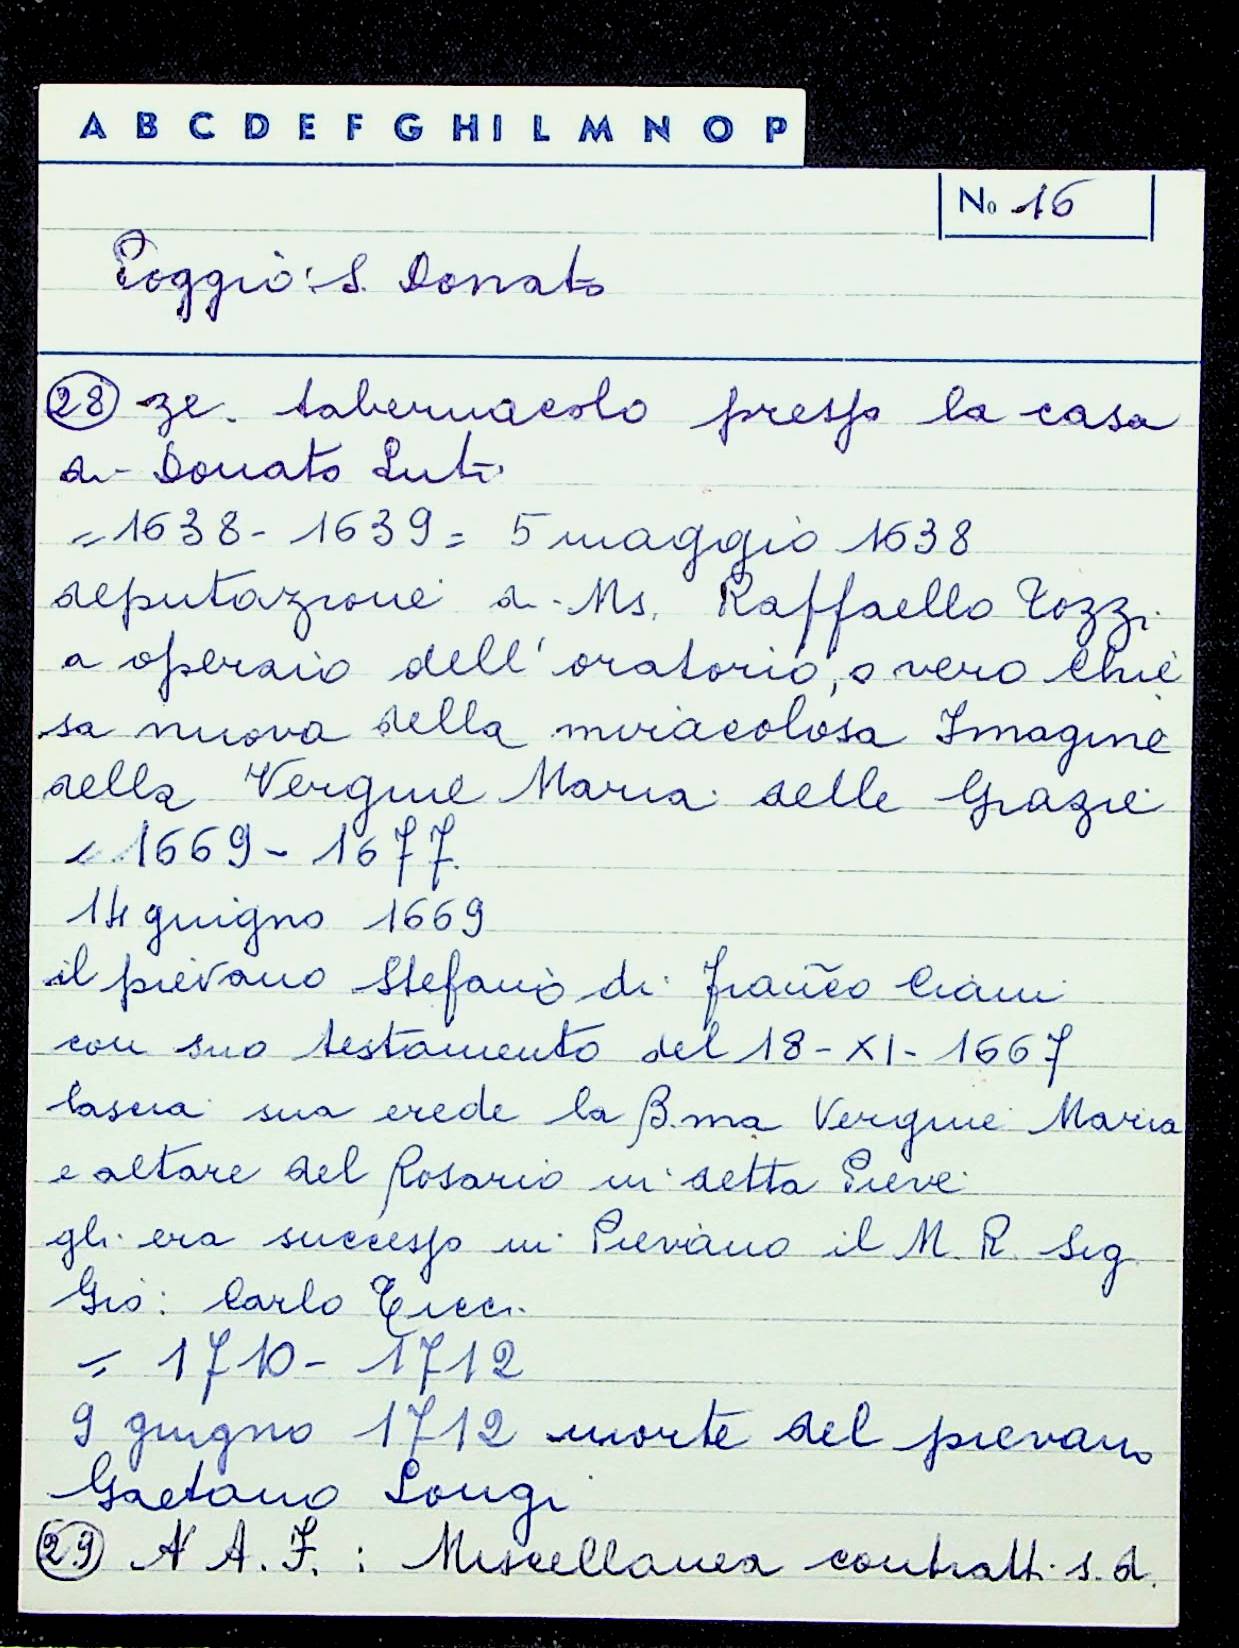 A B C D E F G H I L M N O P
No 16
Poggio: S. Donato
28 ze. tabernacolo presso la casa
di Donato Luti
= 1638 - 1639 = 5 maggio 1638
deputazione di Ms. Raffaello Tozzi
a operaio dell'oratorio, o vero Chie
sa nuova della miracolosa Imagine
della Vergine Maria delle Grazie
= 1669 - 1677.
14 giugno 1669
il pievano Stefano di Franco Ciani
con suo testamento del 18-XI-1667
lascia sua erede la B.ma Vergine Maria
e altare del Rosario in detta Pieve
gli era successo in Pievano il M. R. Sig
Gio: Carlo Tucci
= 1710 - 1712
9 giugno 1712 morte del pievano
Gaetano Longi
29 N A. F. : Miscellanea contratti s. d.